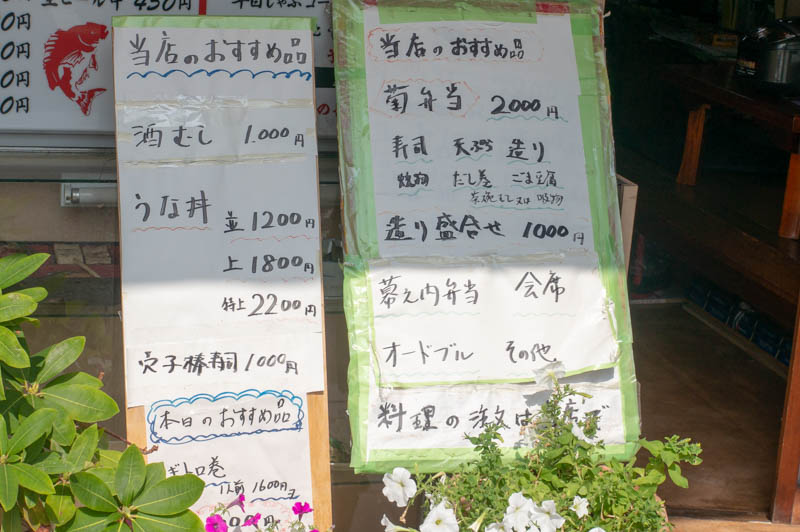 生ビール中 450円
0円
0円
0円
0円
当店のおすすめ品
酒むし 1.000円
うな丼
並 1200円
上 1800円
特上 2200円
穴子棒寿司 1000円
本日のおすすめ品
ギトロ巻
1人前 1600円
当店のおすすめ品
菊弁当 2000円
寿司 天ぷら 造り
焼物 だし巻 ごま豆腐
茶碗むし又は吸物
造り盛合せ 1000円
幕之内弁当 会席
オードブル その他
料理の注文は